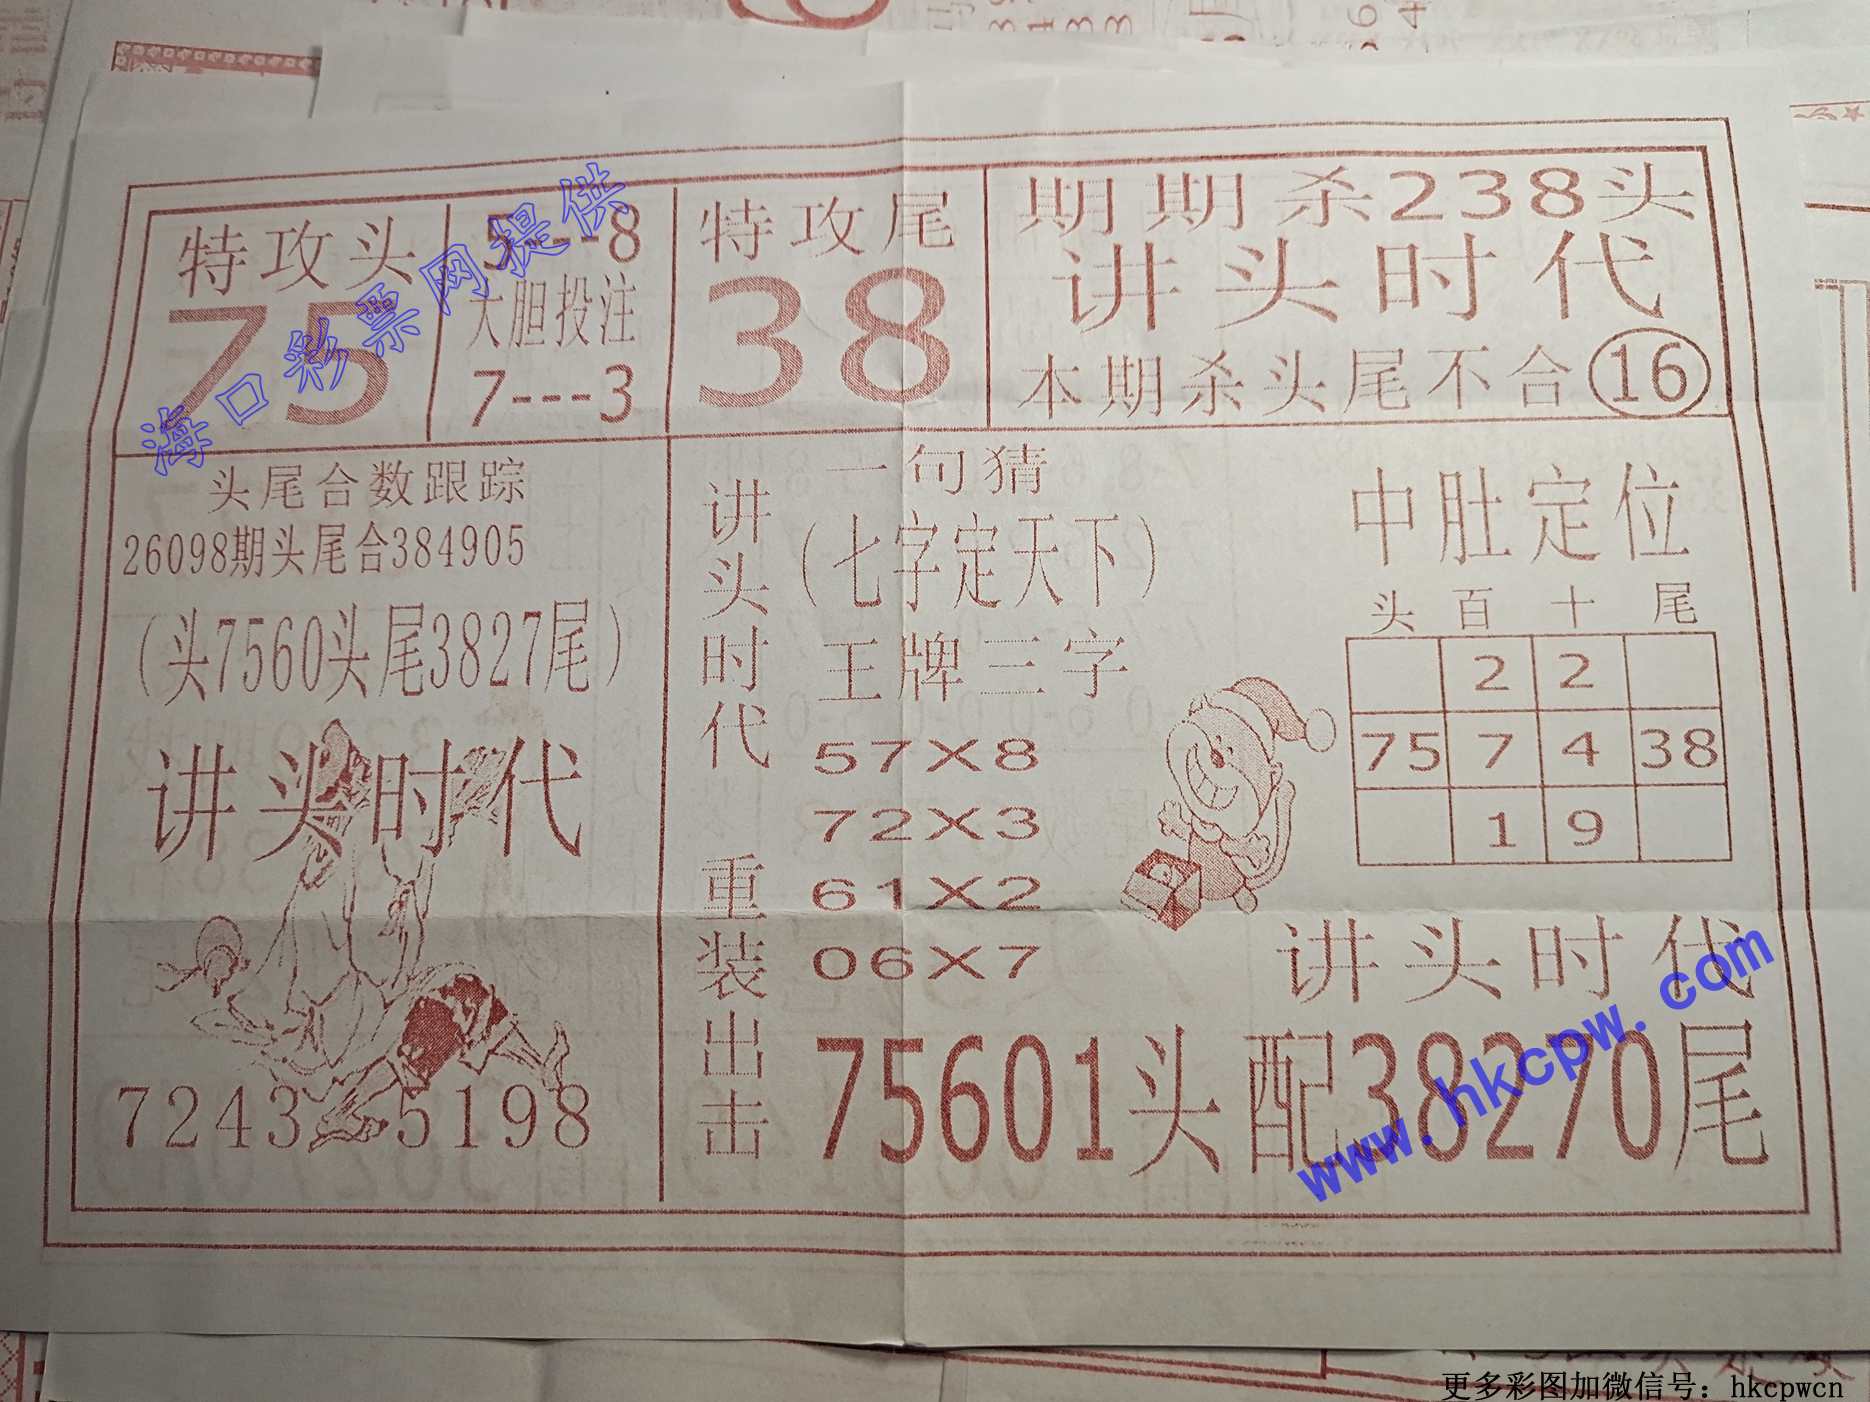 特攻头
75
5---8
大胆投注
7---3
特攻尾
38
期期杀238头
讲头时代
本期杀头尾不合16
头尾合数跟踪
26098期头尾合384905
(头7560头尾3827尾)
讲头时代
7243 5198
讲头时代 重装出击
一句猜
(七字定天下)
王牌三字
57X8
72X3
61X2
06X7
中肚定位
头 百 十 尾
2 2
75 7 4 38
1 9
讲头时代
75601头配38270尾
海口彩票网提供
www.hkcpw.com
更多彩图加微信号：hkcpwcn